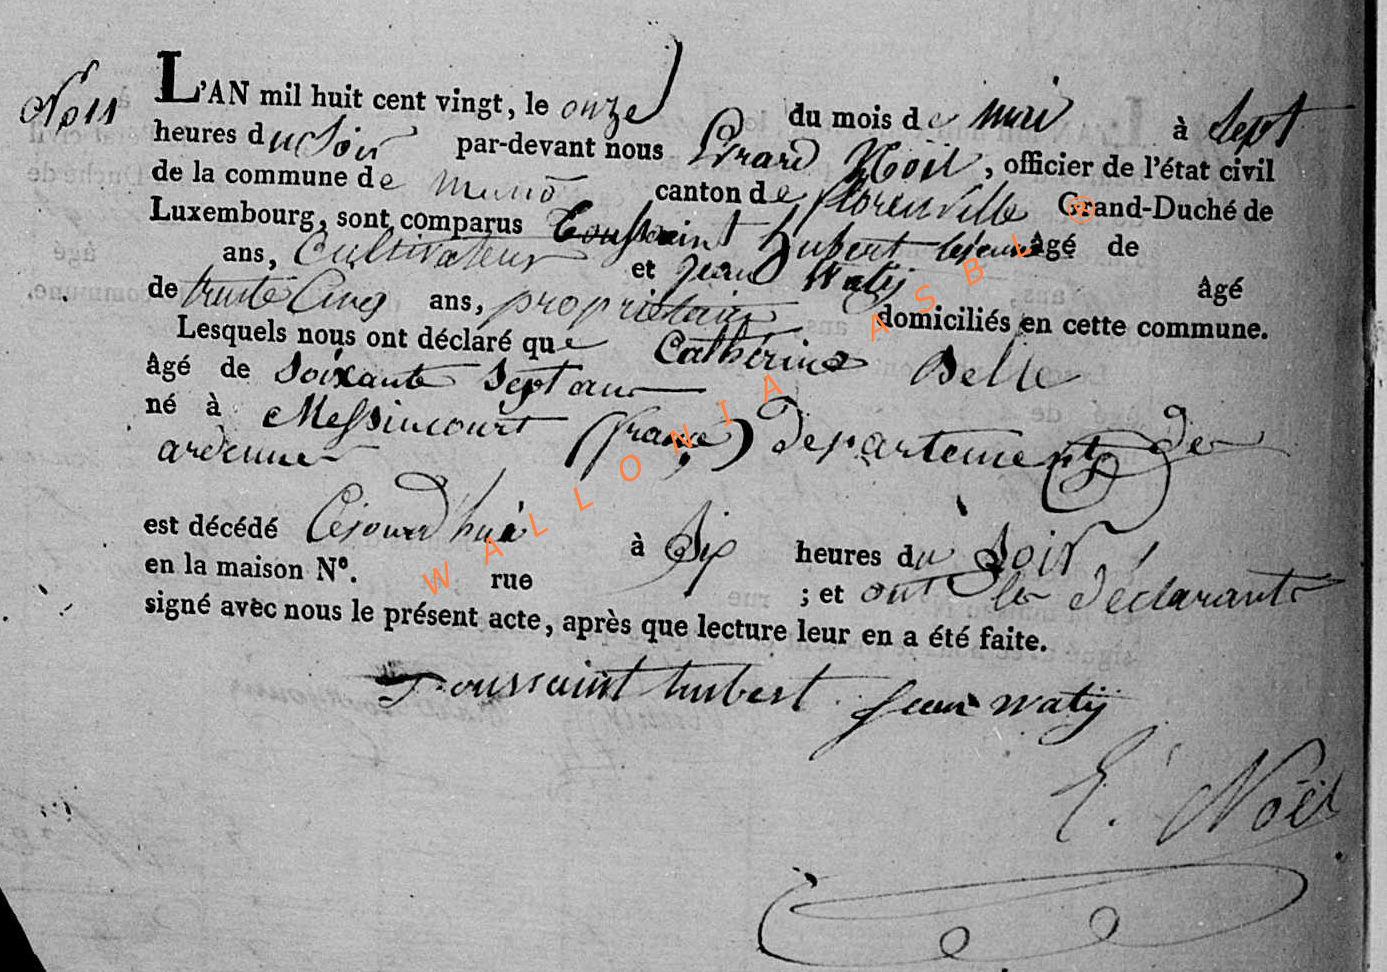 N° 11
L'AN mil huit cent vingt, le onze du mois de mai à sept
heures du Soir par-devant nous Evrard Noël, officier de l'état civil
de la commune de muno canton de florenville Grand-Duché de
Luxembourg, sont comparus Toussaint hubert lejeune âgé de
ans, Cultivateur et jean Watÿ âgé
de trente Cinq ans, proprietaire domiciliés en cette commune.
Lesquels nous ont déclaré que Cathérine Belle
âgé de Soixante Sept ans
né à Messincourt (france) departement des
ardenne
est décédé Cejourdhui à Six heures du Soir
en la maison N°. rue ; et ont les déclarants
signé avec nous le présent acte, après que lecture leur en a été faite.
Toussaint hubert jean watÿ
E. Noël
WALLONIA ASBL ©